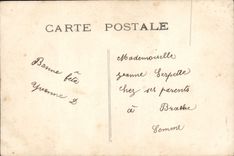 CARTE POSTALE
Bonne fête
Yvonne D
Mademoiselle
Jeanne Serpette
chez ses parents
à Brache
Somme